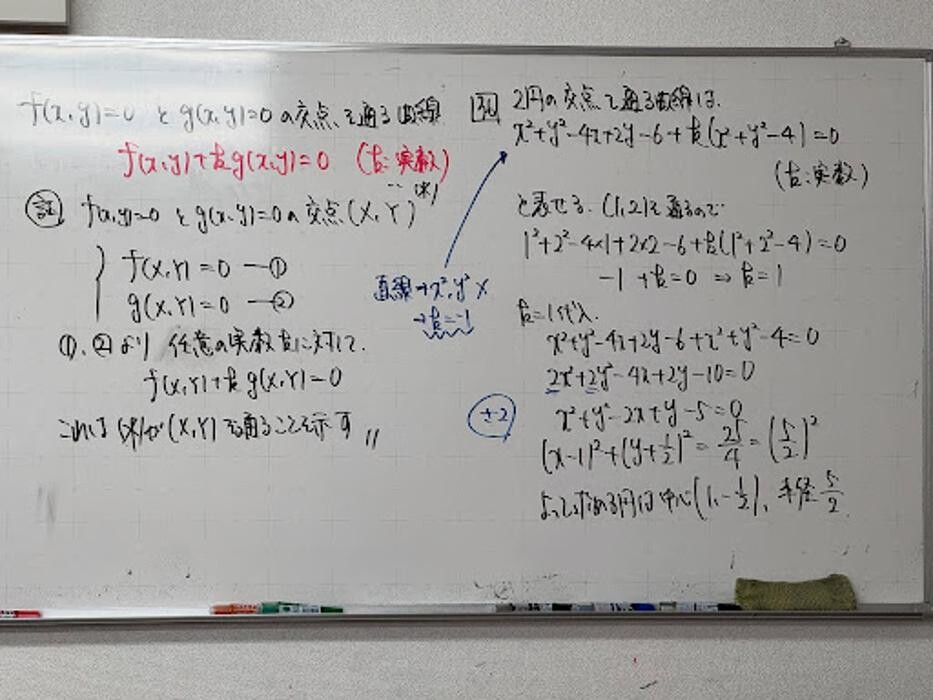 f(x,y)=0 と g(x,y)=0 の交点を通る曲線
f(x,y)+kg(x,y)=0 (k:実数)
…(*)
証 f(x,y)=0 と g(x,y)=0 の交点 (X,Y)
f(X,Y)=0 ―①
g(X,Y)=0 ―②
①、②より 任意の実数kに対して、
f(X,Y)+kg(X,Y)=0
これは(*)が(X,Y)を通ることを示す 〃
直線→x²,y² ×
→k=-1
例 2円の交点を通る曲線は、
x²+y²-4x+2y-6+k(x²+y²-4)=0
(k:実数)
と表せる. (1,2)を通るので
1²+2²-4×1+2×2-6+k(1²+2²-4)=0
-1+k=0 ⇒ k=1
k=1代入.
x²+y²-4x+2y-6+x²+y²-4=0
2x²+2y²-4x+2y-10=0
÷2
x²+y²-2x+y-5=0
(x-1)²+(y+1/2)²=25/4=(5/2)²
よって求める円は中心(1,-1/2)、半径5/2.